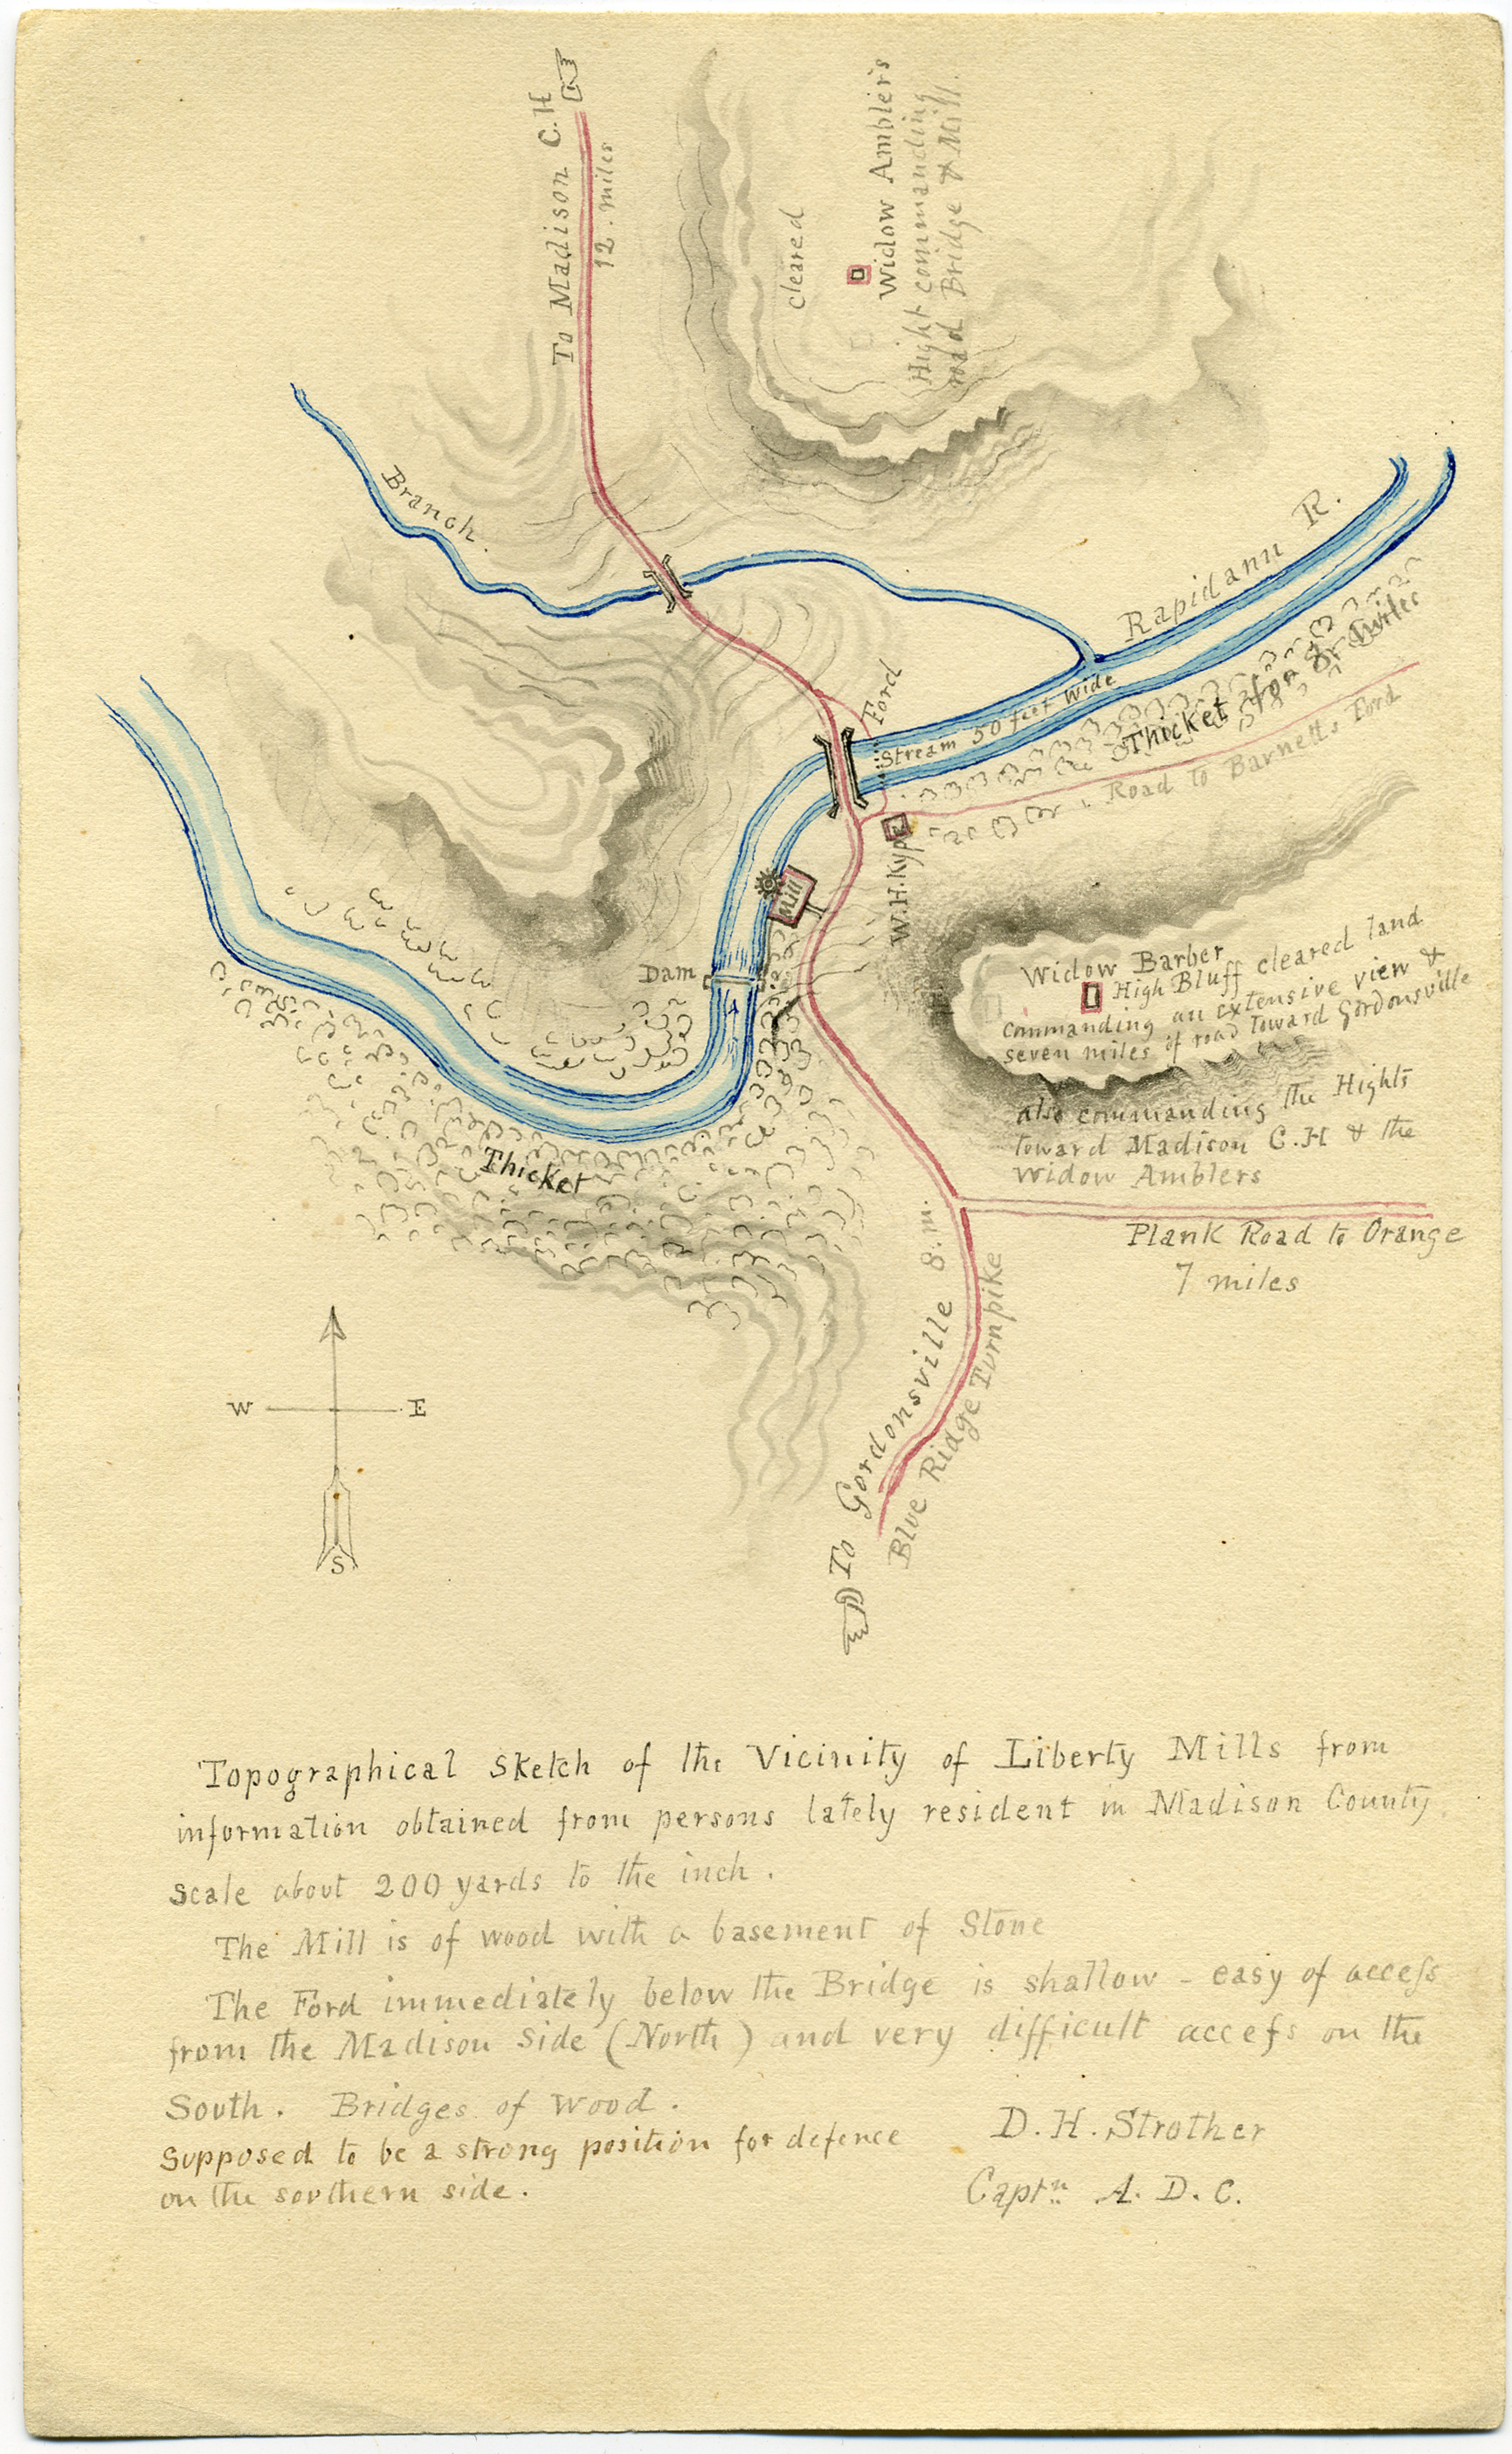 To Madison C.H
12. miles
cleared
Widow Ambler's
Hight commanding
road Bridge & Mill.
Branch.
Rapidann R.
Ford
Stream 50 feet wide
Thicket for 3/4 miles
Road to Barnetts Ford
W.H.Kype
Mill
Dam
Widow Barber
High Bluff cleared land
commanding an extensive view &
seven miles of road toward Gordonsville
also commanding the Hights
toward Madison C.H & the
Widow Amblers
Thicket
Plank Road to Orange
7 miles
To Gordonsville 8.m.
Blue Ridge Turnpike
W E
S
Topographical Sketch of the Vicinity of Liberty Mills from
information obtained from persons lately resident in Madison County
scale about 200 yards to the inch.
The Mill is of wood with a basement of Stone
The Ford immediately below the Bridge is shallow - easy of access
from the Madison Side (North) and very difficult access on the
South. Bridges of wood.
Supposed to be a strong position for defence
on the southern side.
D.H. Strother
Captn A.D.C.